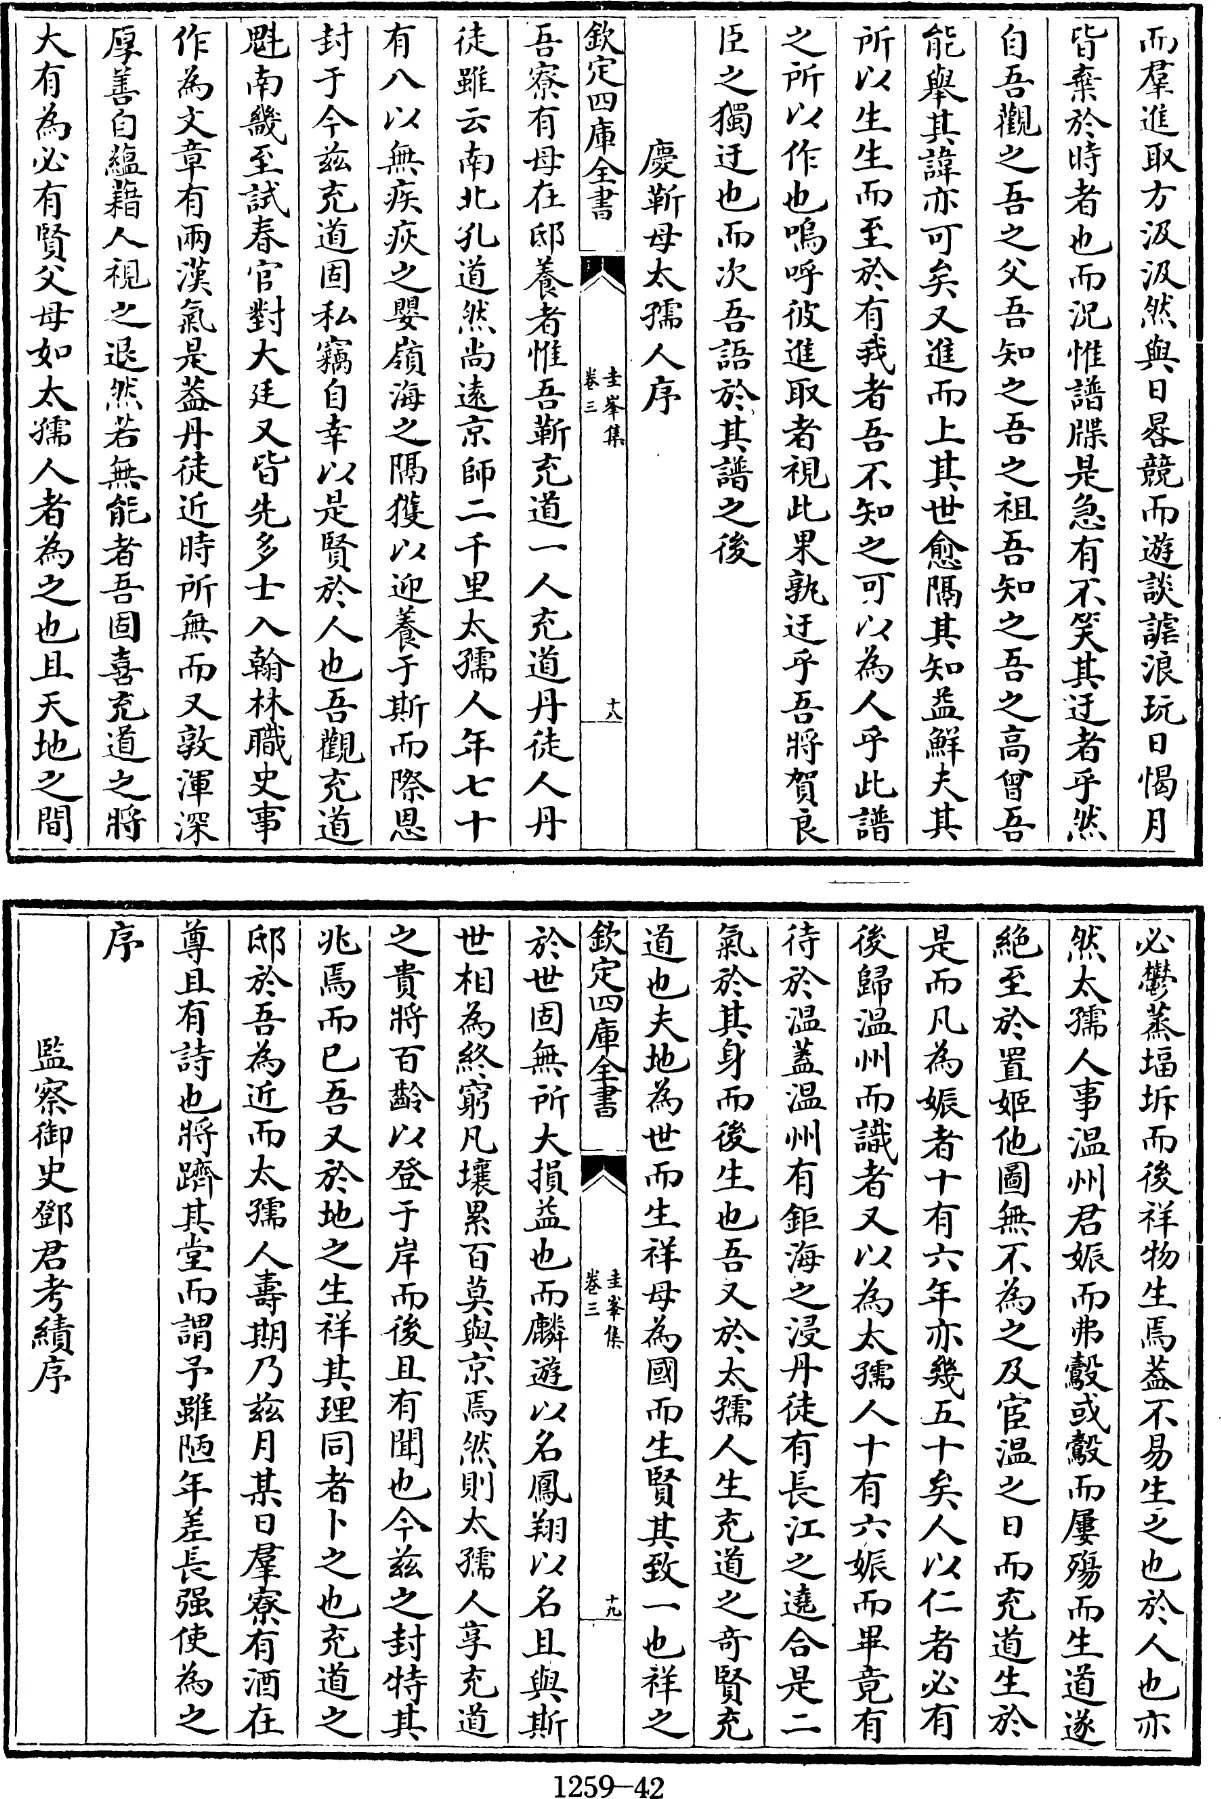 而羣進取方汲汲然與日晷競而遊談謔浪玩日愒月
皆棄於時者也而況惟譜牒是急有不笑其迂者乎然
自吾觀之吾之父吾知之吾之祖吾知之吾之高曾吾
能舉其諱亦可矣又進而上其世愈隔其知益鮮夫其
所以生生而至於有我者吾不知之可以為人乎此譜
之所以作也嗚呼彼進取者視此果孰迂乎吾將賀良
臣之獨迂也而次吾語於其譜之後
慶靳母太孺人序
欽定四庫全書
圭峯集
卷三
十八
吾寮有母在邸養者惟吾靳充道一人充道丹徒人丹
徒雖云南北孔道然尚遠京師二千里太孺人年七十
有八以無疾疢之嬰嶺海之隔獲以迎養于斯而際恩
封于今茲充道固私竊自幸以是賢於人也吾觀充道
魁南畿至試春官對大廷又皆先多士入翰林職史事
作為文章有兩漢氣是蓋丹徒近時所無而又敦渾深
厚善自蘊藉人視之退然若無能者吾固喜充道之將
大有為必有賢父母如太孺人者為之也且天地之間
必鬱蒸堛坼而後祥物生焉蓋不易生之也於人也亦
然太孺人事溫州君娠而弗鷇或鷇而屢殤而生道遂
絕至於置姬他圖無不為之及宦溫之日而充道生於
是而凡為娠者十有六年亦幾五十矣人以仁者必有
後歸溫州而識者又以為太孺人十有六娠而畢竟有
待於溫蓋溫州有鉅海之浸丹徒有長江之遶合是二
氣於其身而後生也吾又於太孺人生充道之奇賢充
道也夫地為世而生祥母為國而生賢其致一也祥之
欽定四庫全書
圭峯集
卷三
十九
於世固無所大損益也而麟遊以名鳳翔以名且與斯
世相為終窮凡壤累百莫與京焉然則太孺人享充道
之貴將百齡以登于岸而後且有聞也今茲之封特其
兆焉而已吾又於地之生祥其理同者卜之也充道之
邸於吾為近而太孺人壽期乃茲月某日羣寮有酒在
尊且有詩也將躋其堂而謂予雖陋年差長强使為之
序
監察御史鄧君考績序
1259—42